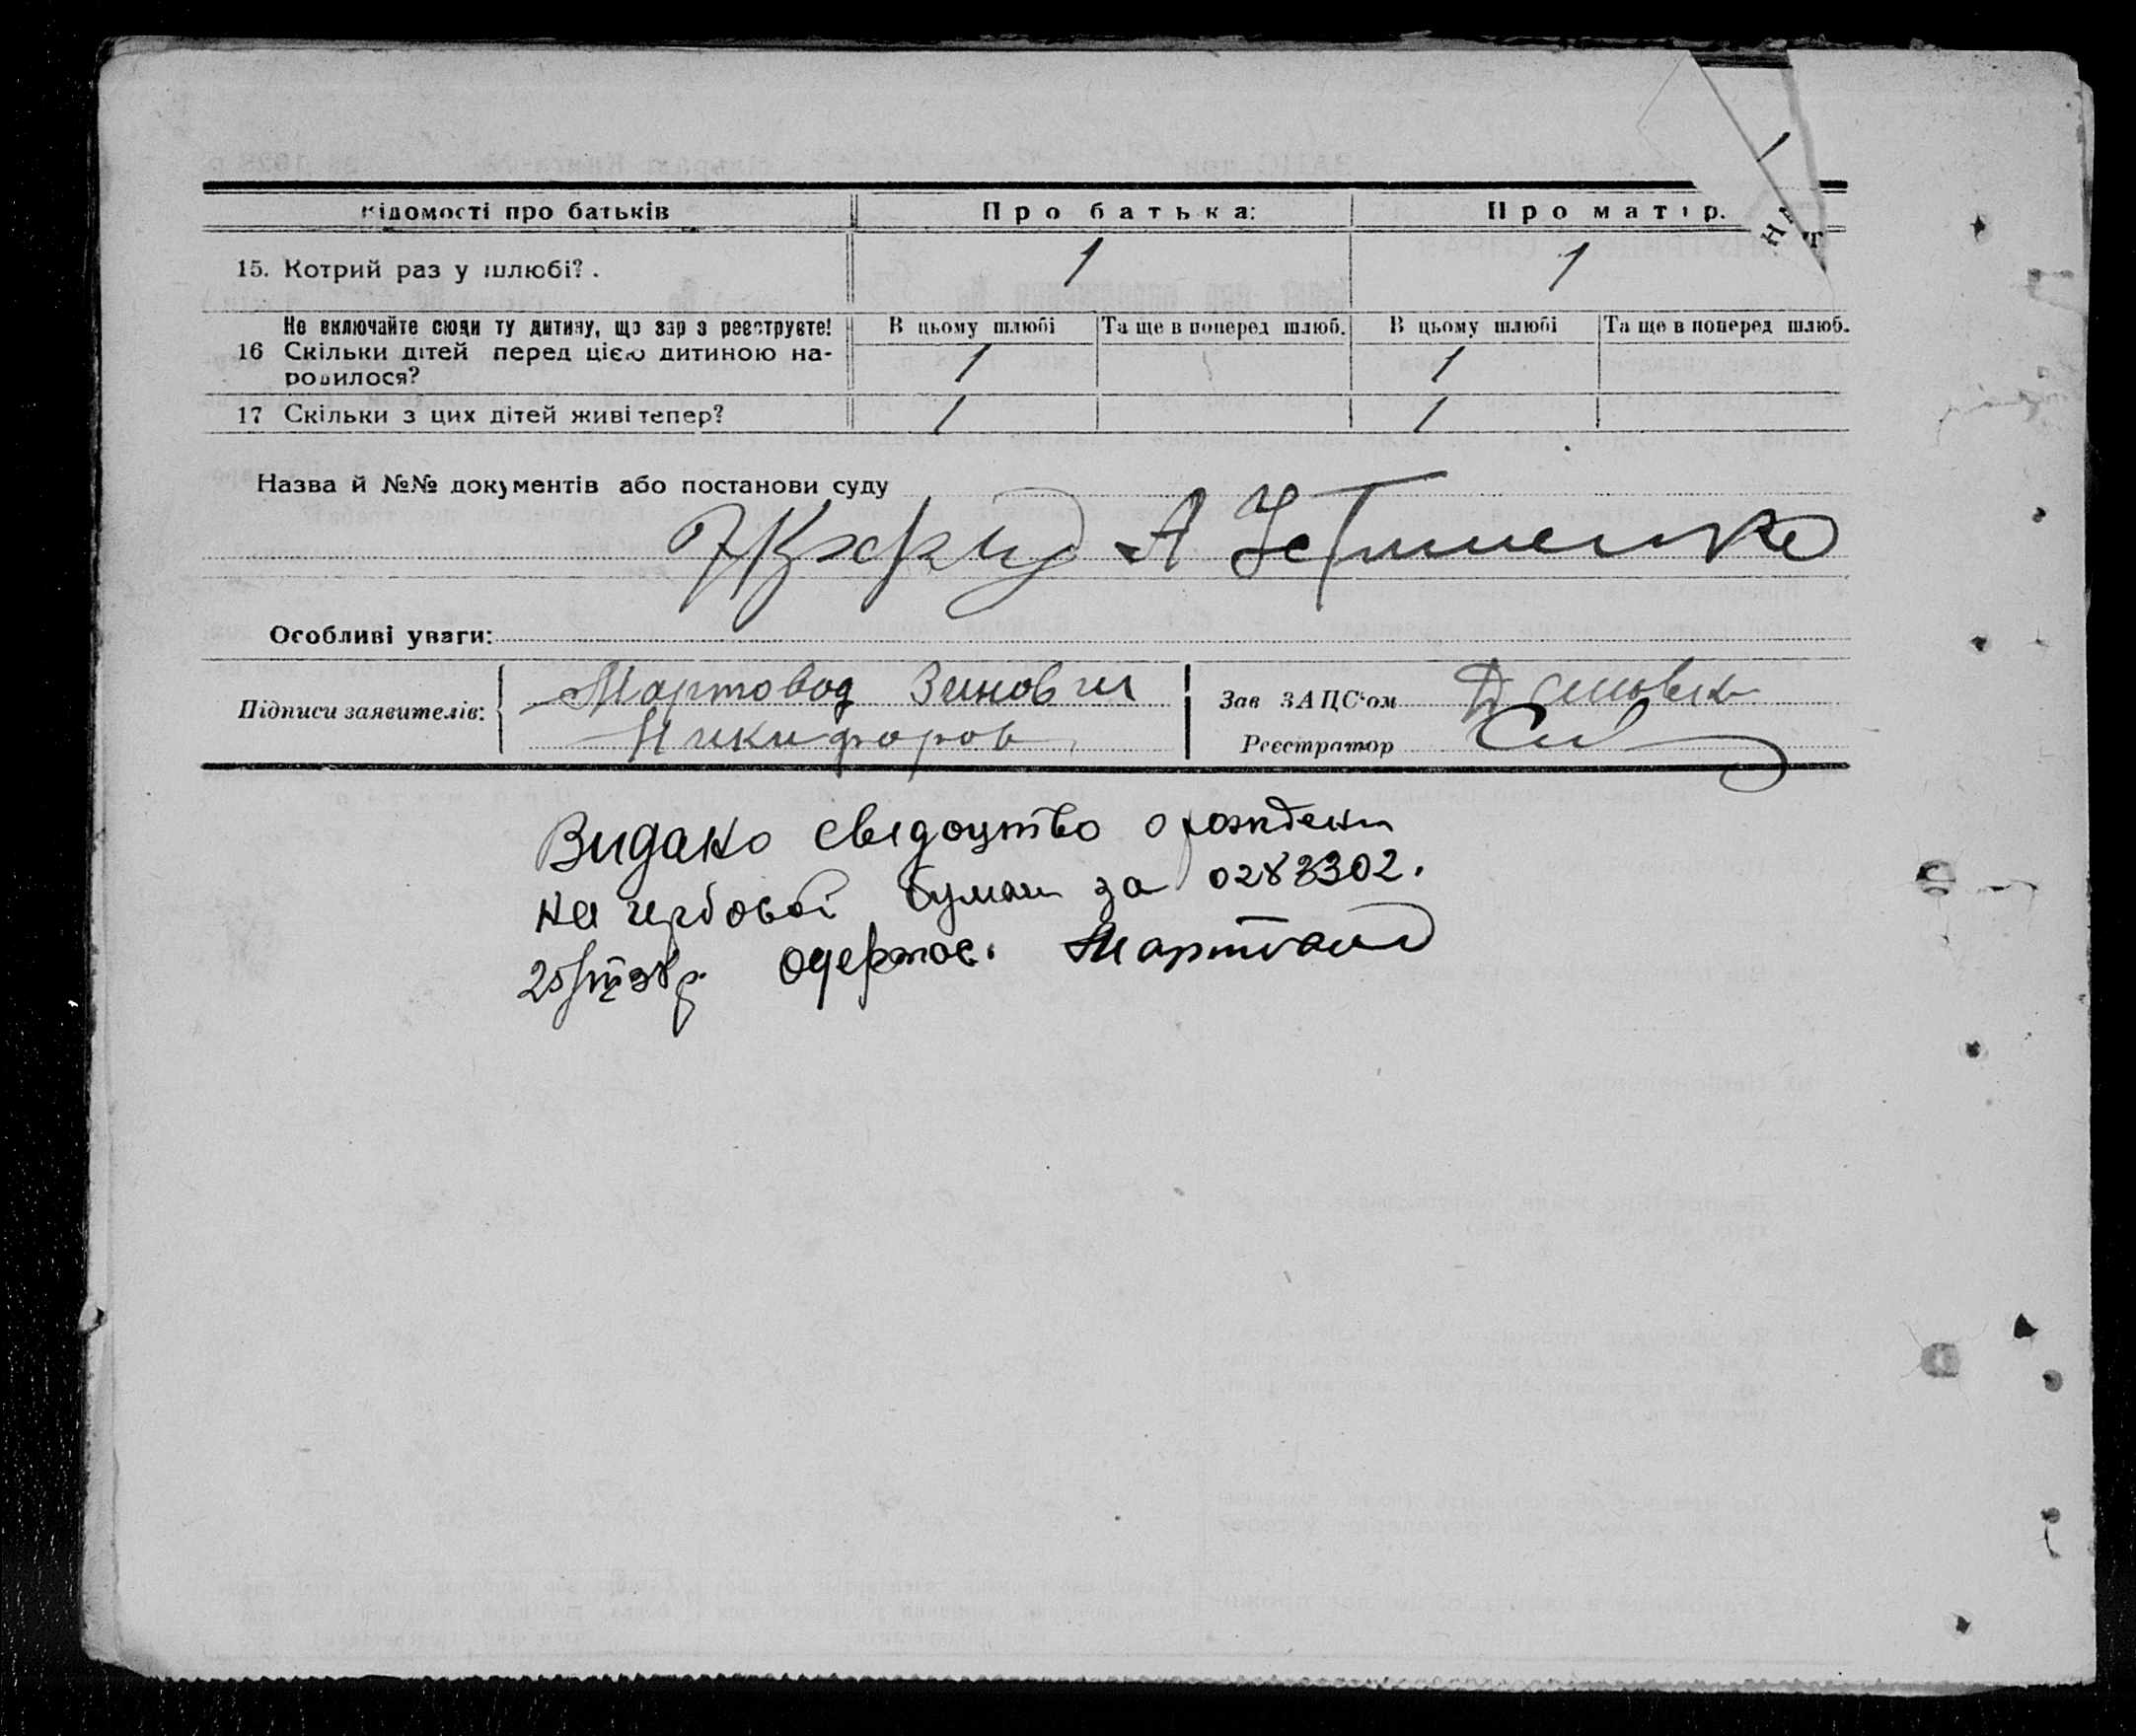 відомості про батьків Про батька: Про матір.
15. Котрий раз у шлюбі? . 1 1
Не включайте сюди ту дитину, що зар з реєструєте! В цьому шлюбі Та ще в поперед шлюб. В цьому шлюбі Та ще в поперед шлюб.
16 Скільки дітей перед цією дитиною на- 1 1
родилося?
17 Скільки з цих дітей живі тепер? 1 1
Назва й №№ документів або постанови суду
А Устименко
Особливі уваги:
Підписи заявителів: Мартовод Зиновий
Никифоров
Зав ЗАЦС'ом
Реєстратор
Видано свидоцтво о рождени
на гербовой бумаги за 0283302.
25/III 38 р. Одержав. Мартовод